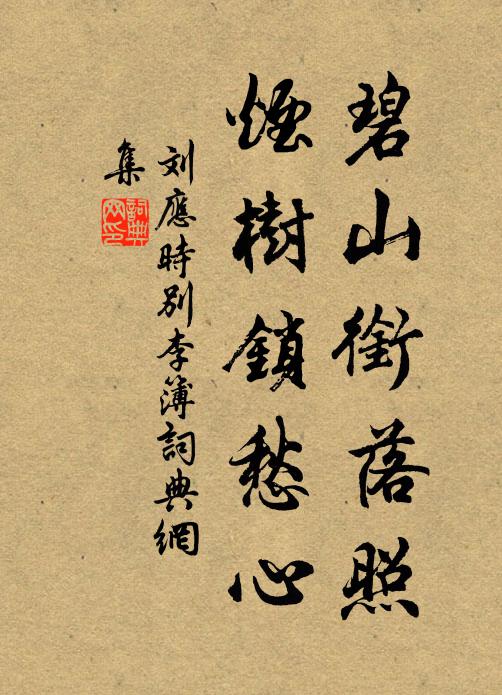 碧山銜落照
煙樹鎖愁心
刘應時別李簿詞典網
集
詞典网印